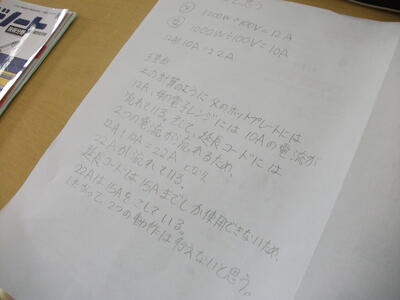 と思う
1200W÷100V=12A
1000W÷100V=10A
12A+10A=22A
上の計算のように父のホットプレートには
12A、母の電子レンジには10Aの電流が
流れている。そして、延長コードには
2つの電流が流れるため、
12A+10A=22Aとなり
22Aが流れている。
延長コードは15Aまでしか使用できないため、
22Aは15Aをこしている。
したがって、2つの動作は行えないと思う。
ゾート